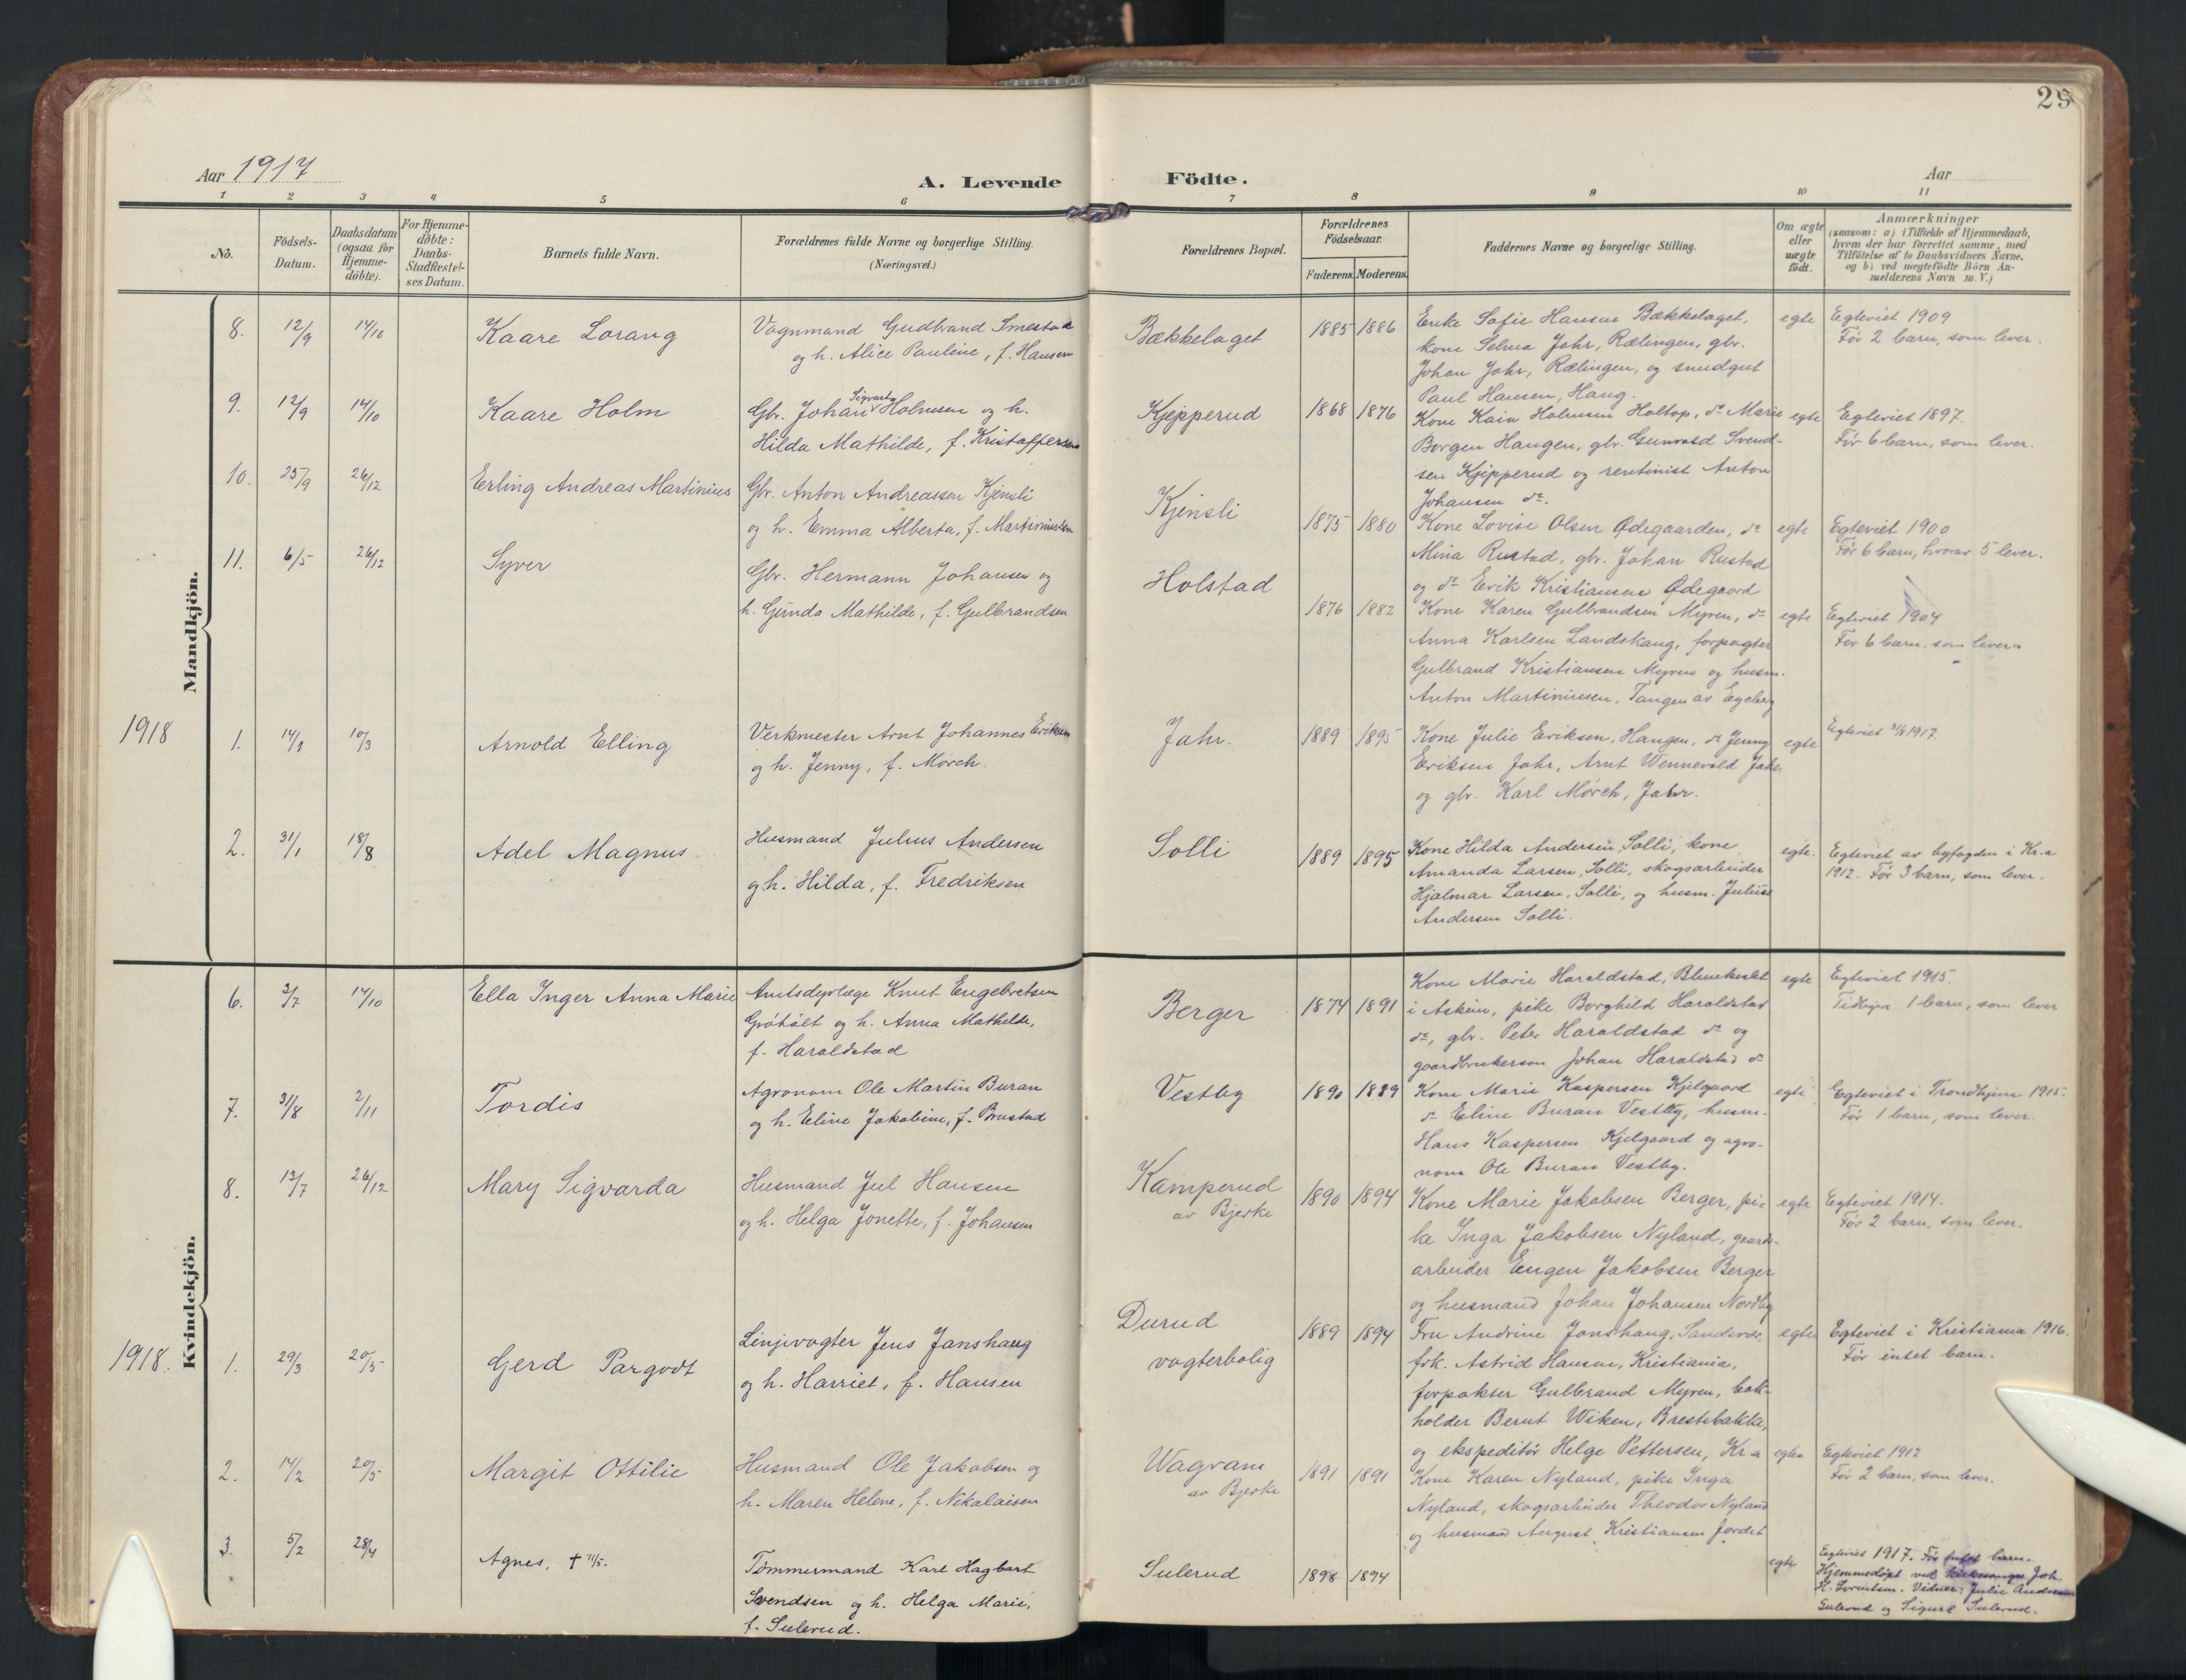 29
Aar 1917
A. Levende Födte.
Aar
1 2 3 4 5 6 7 8 9 10 11
No.
Födsels-Datum.
Daabsdatum (ogsaa for Hjemme-döbte).
For Hjemme-döbte: Daabs-Stadfæstel-ses Datum.
Barnets fulde Navn.
Forældrenes fulde Navne og borgerlige Stilling.
(Næringsvei.)
Forældrenes Bopæl.
Forældrenes Födselsaar.
Faderens. Moderens.
Faddernes Navne og borgerlige Stilling.
Om ægte eller uægte födt.
Anmærkninger
(saasom: a) i Tilfælde af Hjemmedaab, hvem der har forrettet samme, med Tilföielse af to Daabsvidners Navne, og b) ved uægtefödte Börn An-melderens Navn m.V.)
Mandkjön.
8. 12/9 14/10 Kaare Lorang
Vognmand Gudbrand Smestad
og h. Alice Pauline, f. Hansen
Bækkelaget 1885 1886
Enke Sofie Hansen Bækkelaget,
kone Selma Jahr, Rælingen, gbr.
Johan Jahr, Rælingen, og smedgut
Paul Hansen, Haug.
egte Egteviet 1909
Før 2 barn, som lever.
9. 12/9 14/10 Kaare Holm
Gbr. Johan Sigvart Holmsen og h.
Hilda Mathilde, f. Kristoffersen
Kjepperud 1868 1876
Kone Kaia Holmsen Holtop, do Marie
Borgen Haugen, gbr. Gunvald Svend-
sen Kjepperud og rentenist Anton
Johansen do.
egte Egteviet 1897.
Før 6 barn, som lever.
10. 25/9 26/12 Erling Andreas Martinius
Gbr. Anton Andreassen Kjensli
og h. Emma Alberta, f. Martiniussen
Kjensli 1875 1880
Kone Lovise Olsen Ødegaarden, do
Mina Rustad, gbr. Johan Rustad
og do Erik Kristiansen Ødegaard
egte Egteviet 1900
Før 6 barn, hvorav 5 lever.
11. 6/5 26/12 Syver
Gbr. Hermann Johansen og
h. Gunda Mathilde, f. Gulbrandsen
Holstad 1876 1882
Kone Karen Gulbrandsen Myren, do
Anna Karlsen Landskaug, forpagter
Gulbrand Kristiansen Myren og husm.
Anton Martiniusen, Tangen av Egeberg
egte Egteviet 1904
Før 6 barn, som lever.
1918
1. 14/1 10/3 Arnold Elling
Verkmester Arnt Johannes Eriksen
og h. Jenny, f. Mörch.
Jahr. 1889 1895
Kone Julie Eriksen, Haugen, do Jenny
Eriksen Jahr, Arnt Wennevold Jahr
og gbr. Karl Mörch, Jahr.
egte Egteviet 1917.
2. 31/1 18/8 Adel Magnus.
Husmand Julius Andersen
og h. Hilda, f. Fredriksen
Solli 1889 1895
Kone Hilda Andersen, Solli, kone
Amanda Larsen, Solli, skogsarbeider
Hjalmar Larsen, Solli, og husm. Julius
Andersen Solli.
egte. Egteviet av byfogden i Kr.a
1912. Før 3 barn, som lever.
Kvindekjön.
6. 3/7 14/10 Ella Inger Anna Marie
Amtsdyrlæge Knut Engebretsen
Gröhölt og h. Anna Mathilde,
f. Haraldstad
Berger 1874 1891
Kone Marie Haraldstad,
i Askim, pike Borghild Haraldstad
do, gbr. Peter Haraldstad do og
gaardbrukerson Johan Haraldstad do
egte Egteviet 1915.
Tidligere 1 barn, som lever
7. 31/8 2/11 Tordis
Agronom Ole Martin Buran
og h. Eline Jakobine, f. Brustad
Vestby 1890 1889
Kone Marie Kaspersen Kjelgaard
do Eline Buran Vestby, husm.
Hans Kaspersen Kjelgaard og agro-
nom Ole Buran Vestby.
egte Egteviet i Trondhjem 1915.
Før 1 barn, som lever.
8. 13/7 26/12 Mary Sigvarda
Husmand Jul Hansen
og h. Helga Jonette, f. Johansen
Kamperud
av Bjerke 1890 1894
Kone Marie Jakobsen Berger, pi-
ke Inga Jakobsen Nyland, gaards-
arbeider Eugen Jakobsen Berger
og husmand Johan Johansen Nordby
egte Egteviet 1914.
Før 2 barn, som lever.
1918.
1. 29/3 20/5 Gerd Pargodt
Linjevogter Jens Janshaug
og h. Harriet, f. Hansen
Durud
vogterbolig 1889 1894
Fru Andrine Jonshaug, Sandsvær,
frk. Astrid Hansen, Kristiania,
forpakter Gulbrand Myren, bok-
holder Bernt Wiken, Brestebakke,
og ekspeditör Helge Pettersen, Kr.a
egte Egteviet i Kristiania 1916.
Før intet barn.
2. 14/2 20/5 Margit Ottilie
Husmand Ole Jakobsen og
h. Maren Helene, f. Nikolaisen
Wagram
av Bjerke 1891 1891
Kone Karen Nyland, pike Inga
Nyland, skogsarbeider Theodor Nyland
og husmand August Kristiansen Jordet
egte Egteviet 1912
Før 2 barn, som lever.
3. 5/2 28/4 Agnes, † 11/5.
Tømmermand Karl Hagbart
Svendsen og h. Helga Marie,
f. Sulerud.
Sulerud 1898 1894
egte Egteviet 1917. Før intet barn.
Hjemmedöpt ved kirkesanger Joh.
H. Sorensen. Vidner: Julie Andersen
Sulerud og Sigurd Sulerud.